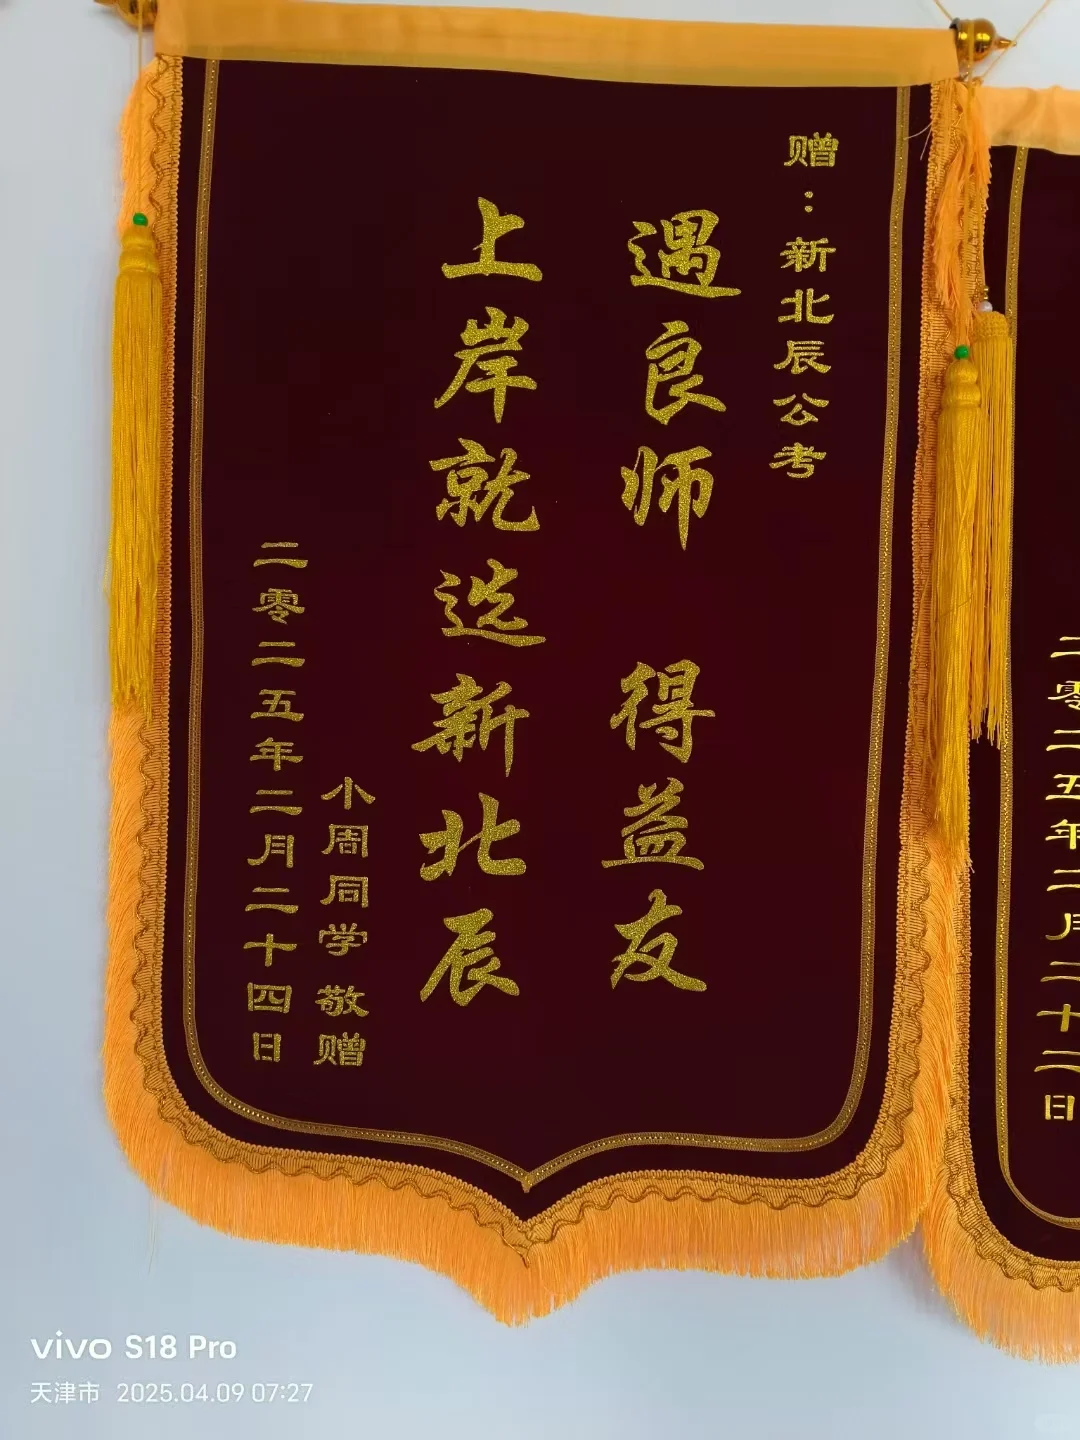 赠：新北辰公考
遇良师 得益友
上岸就选新北辰
小周同学 敬赠
二零二五年二月二十四日
二零二五年二月二十二日
vivo S18 Pro
天津市 2025.04.09 07:27